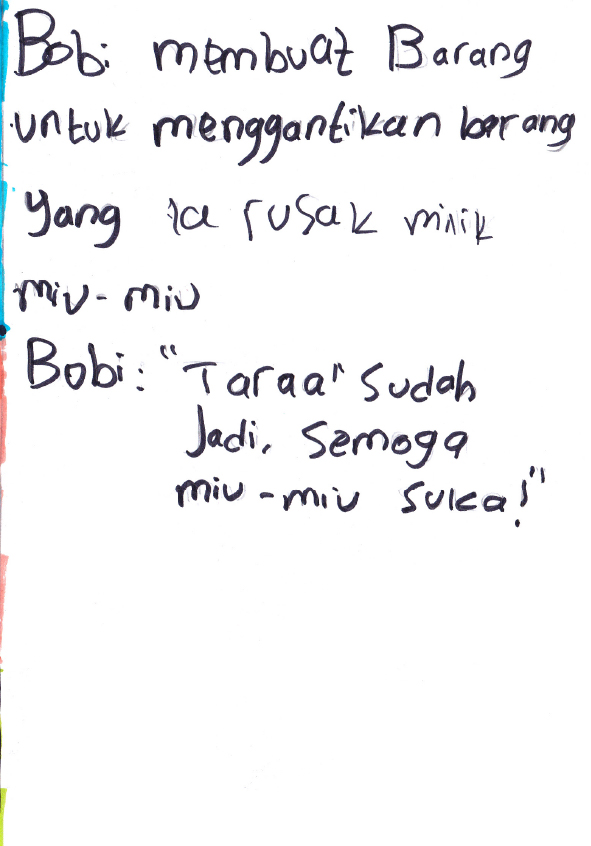 Bobi membuat Barang
untuk menggantikan barang
yang ia rusak milik
miu-miu
Bobi: "Taraa" Sudah
Jadi, Semoga
miu-miu suka!"